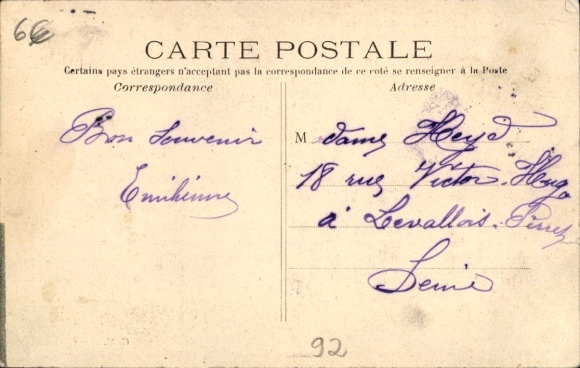 6€
CARTE POSTALE
Certains pays étrangers n'acceptant pas la correspondance de ce coté se renseigner à la Poste
Correspondance
Adresse
Bon Souvenir
Emilienne
M dame Heyd
18 rue Victor-Hugo
à Levallois-Perret
Seine
92